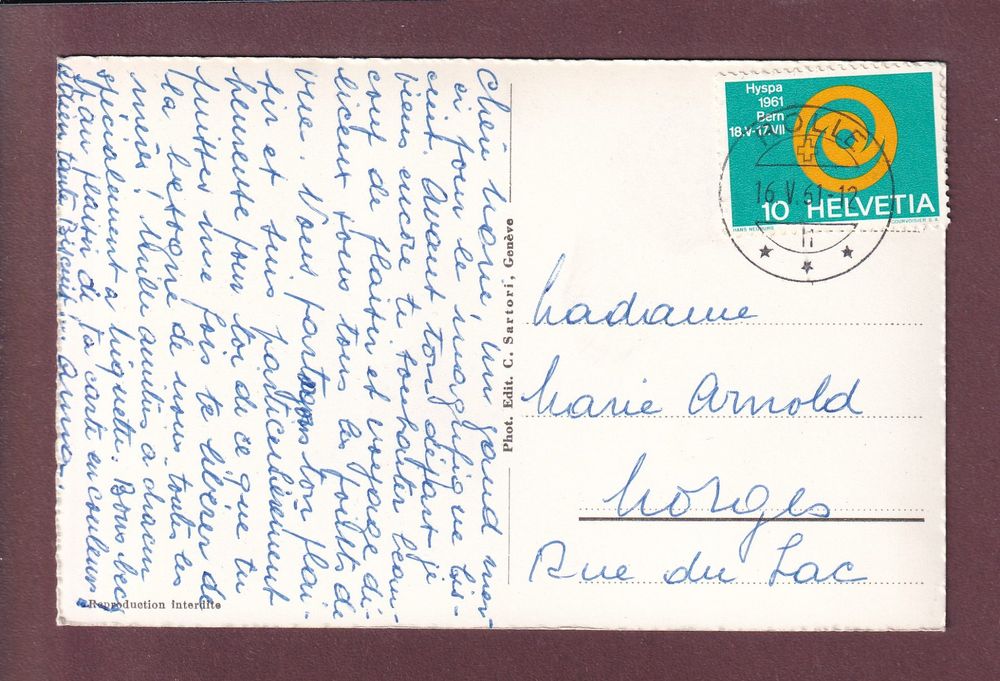 Chère Marie, un grand mer-
ci pour le magnifique bis-
cuit. Avant ton départ je
viens encore te souhaiter beau-
coup de plaisir et voyage dé-
licieux sous tous les points de
vue. Vous partagons ton plai-
sir et suis particulièrement
heureuse pour toi de ce que tu
puisses une fois te libérer de
la besogne de nous toutes les
mères! Mille amitiés à chacun
spécialement à Huguette. Bons becs
Jean plaisir de ta carte en couleurs
tante Anna.
Reproduction interdite
Phot. Edit. C. Sartori, Genève
Hyspa
1961
Bern
18.V-17.VII
10 HELVETIA
HANS NEUBURG
COURVOISIER S.A.
ROLLE
16.V.61-12
Madame
Marie Arnold
Morges
Rue du Lac